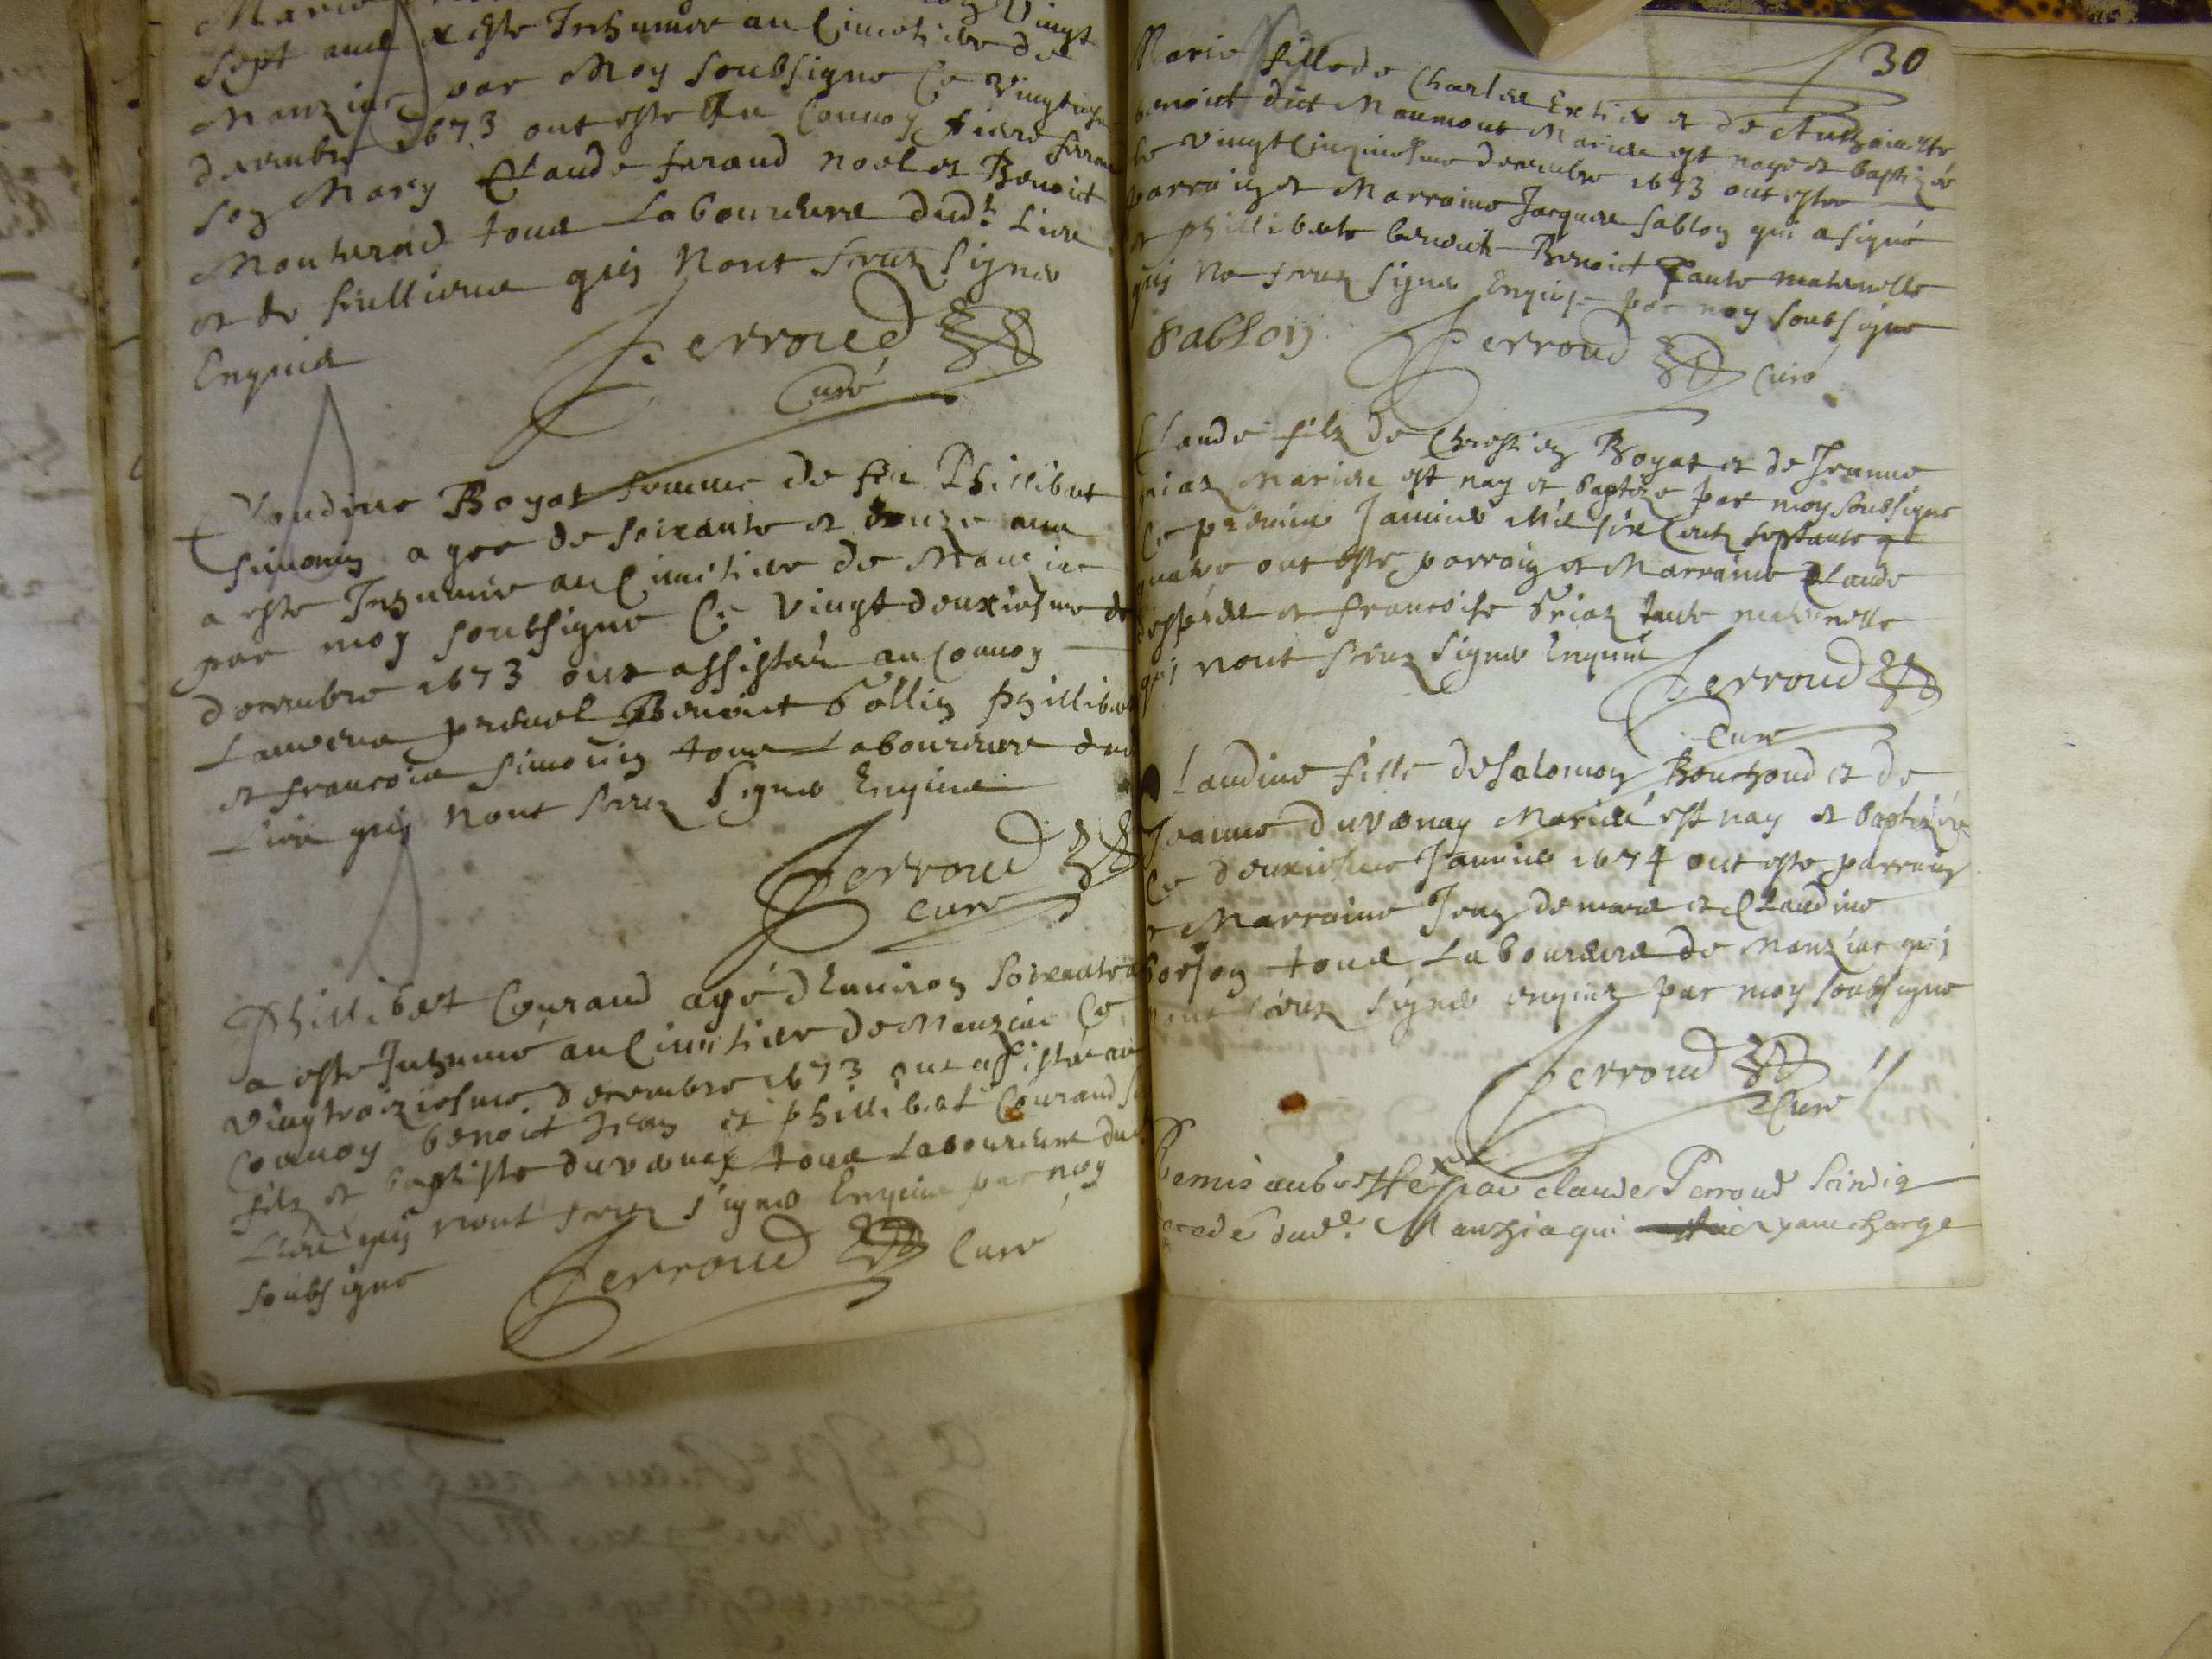 Marie Vingt
sept ans a este Inhumée au Cimetiere de
Manziac par Moy soubsigne Ce Vingtiesme
decembre 1673 ont este Au Convoy Pierre ferrand
son Mary Claude feraud noel et Benoict
Monterad tous Laboureurs dudt Lieu
et de qui Nont sceuz Signer
Enquis
Perroud
Curé
Claudine Boyat femme de feu Phillibert
Simonin agee de soixante et douze ans
a este Inhumée au Cimetiere de Manziac
par moy soubsigne Ce Vingt deuxiesme de
decembre 1673 ont assistés au Convoy
Laurens preuel Benoict Collin Phillibert
et francois Simonin tous Laboureurs dud
Lieu qui Nont sceuz Signer Enquis
Perroud
Curé
Phillibert Couraud agé d'Environ soixante
a este Inhumé au Cimitiere de Manziac Ce
Vingtroiziesme decembre 1673 ont assistés au
Convoy benoict Jean et phillibert Couraud
filz et baptiste duvernay tous Laboureurs dud
Lieu qui Nont sceuz signer Enquis par moy
soubsigne Perroud Curé
30
Marie fille de Charles et de Anthoinette
benoict dict Maumont Mariés est naye et baptizée
le Vingt Cinquiesme decembre 1673 ont estee
parrain et Marraine Jacques Sablon qui a signé
et philliberte benoict Tante maternelle
qui Na sceuz signer Enquise par moy soubsigne
Sablon Perroud Curé
Claude filz de Chrestien Boyat et de Jeanne
briaz Mariés est nay et baptizé par moy soubsigne
Ce premier Janvier Mil six Centz septante
quatre ont este parrain et Marraine Claude
et francoise briaz tante maternelle
qui nont sceuz signer Enquis
Perroud
Curé
Claudine fille de Salomon Bouchoud et de
Jeanne duvernay Mariés est nay et baptizée
Ce deuxiesme Janvier 1674 ont este parrain
et Marraine Jean demare et Claudine
borjon tous Laboureurs de Manziac qui
nont sceuz signer enquis par moy soubsigne
Perroud
Curé
Remis au Greffe par claude Perroud Scindiq
dud. Manzia qui charge